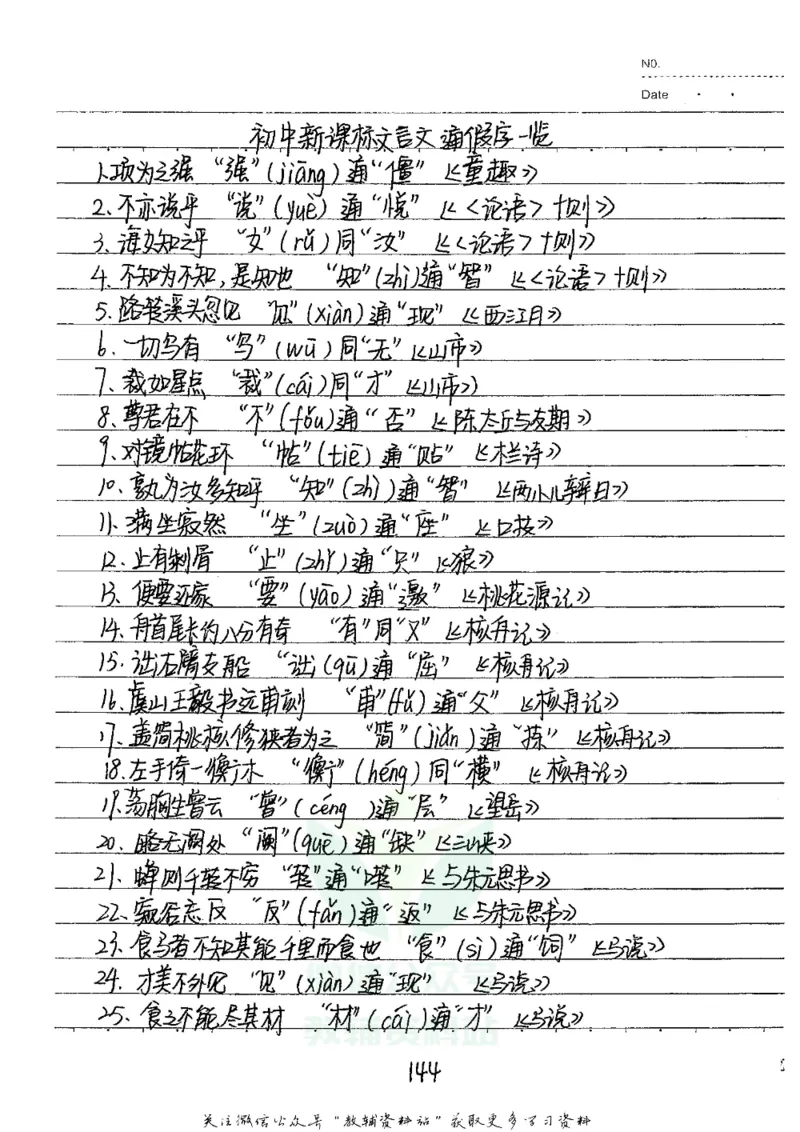 NO.
Date
初中新课标文言文通假字一览
1.项为之强 “强”(jiāng)通“僵” 《童趣》
2.不亦说乎 “说”(yuè)通“悦” 《<论语>十则》
3.诲女知之乎 “女”(rǔ)同“汝” 《<论语>十则》
4.不知为不知,是知也 “知”(zhì)通“智” 《<论语>十则》
5.路转溪头忽见 “见”(xiàn)通“现” 《西江月》
6.一切乌有 “乌”(wū)同“无” 《山市》
7.裁如星点 “裁”(cái)同“才” 《山市》
8.尊君在不 “不”(fǒu)通“否” 《陈太丘与友期》
9.对镜帖花环 “帖”(tiē)通“贴” 《木兰诗》
10.孰为汝多知乎 “知”(zhì)通“智” 《两小儿辩日》
11.满坐寂然 “坐”(zuò)通“座” 《口技》
12.止有剩骨 “止”(zhǐ)通“只” 《狼》
13.便要还家 “要”(yāo)通“邀” 《桃花源记》
14.舟首尾长约八分有奇 “有”同“又” 《核舟记》
15.诎右臂支船 “诎”(qū)通“屈” 《核舟记》
16.虞山王毅书远甫刻 “甫”(fǔ)通“父” 《核舟记》
17.盖简桃核修狭者为之 “简”(jiǎn)通“拣” 《核舟记》
18.左手倚一衡木 “衡”(héng)同“横” 《核舟记》
19.荡胸生曾云 “曾”(céng )通“层” 《望岳》
20.略无阙处 “阙”(quē)通“缺” 《三峡》
21.蝉则千转不穷 “转”通“啭” 《与朱元思书》
22.窥谷忘反 “反”(fǎn)通“返” 《与朱元思书》
23.食马者不知其能千里而食也 “食”(sì)通“饲” 《马说》
24.才美不外见 “见”(xiàn)通“现” 《马说》
25.食之不能尽其材 “材”(cái)通“才” 《马说》
144
关注微信公众号“教辅资料站”获取更多学习资料